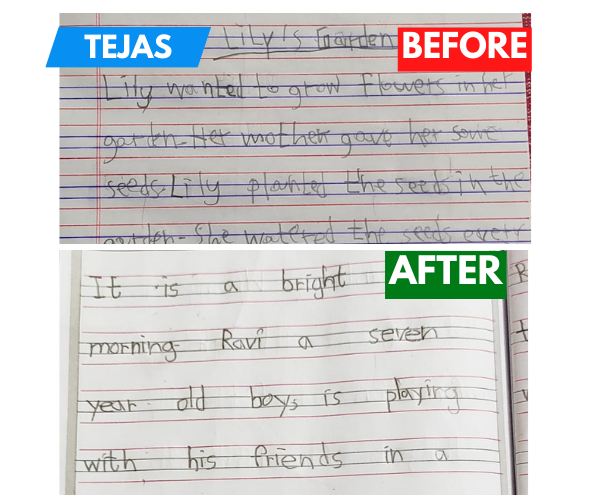 TEJAS
BEFORE
Lily's Garden
Lily wanted to grow flowers in her
garden. Her mother gave her some
seeds. Lily planted the seeds in the
garden. She watered the seeds every
AFTER
It is a bright
morning. Ravi a seven
year old boys is playing
with his friends in a